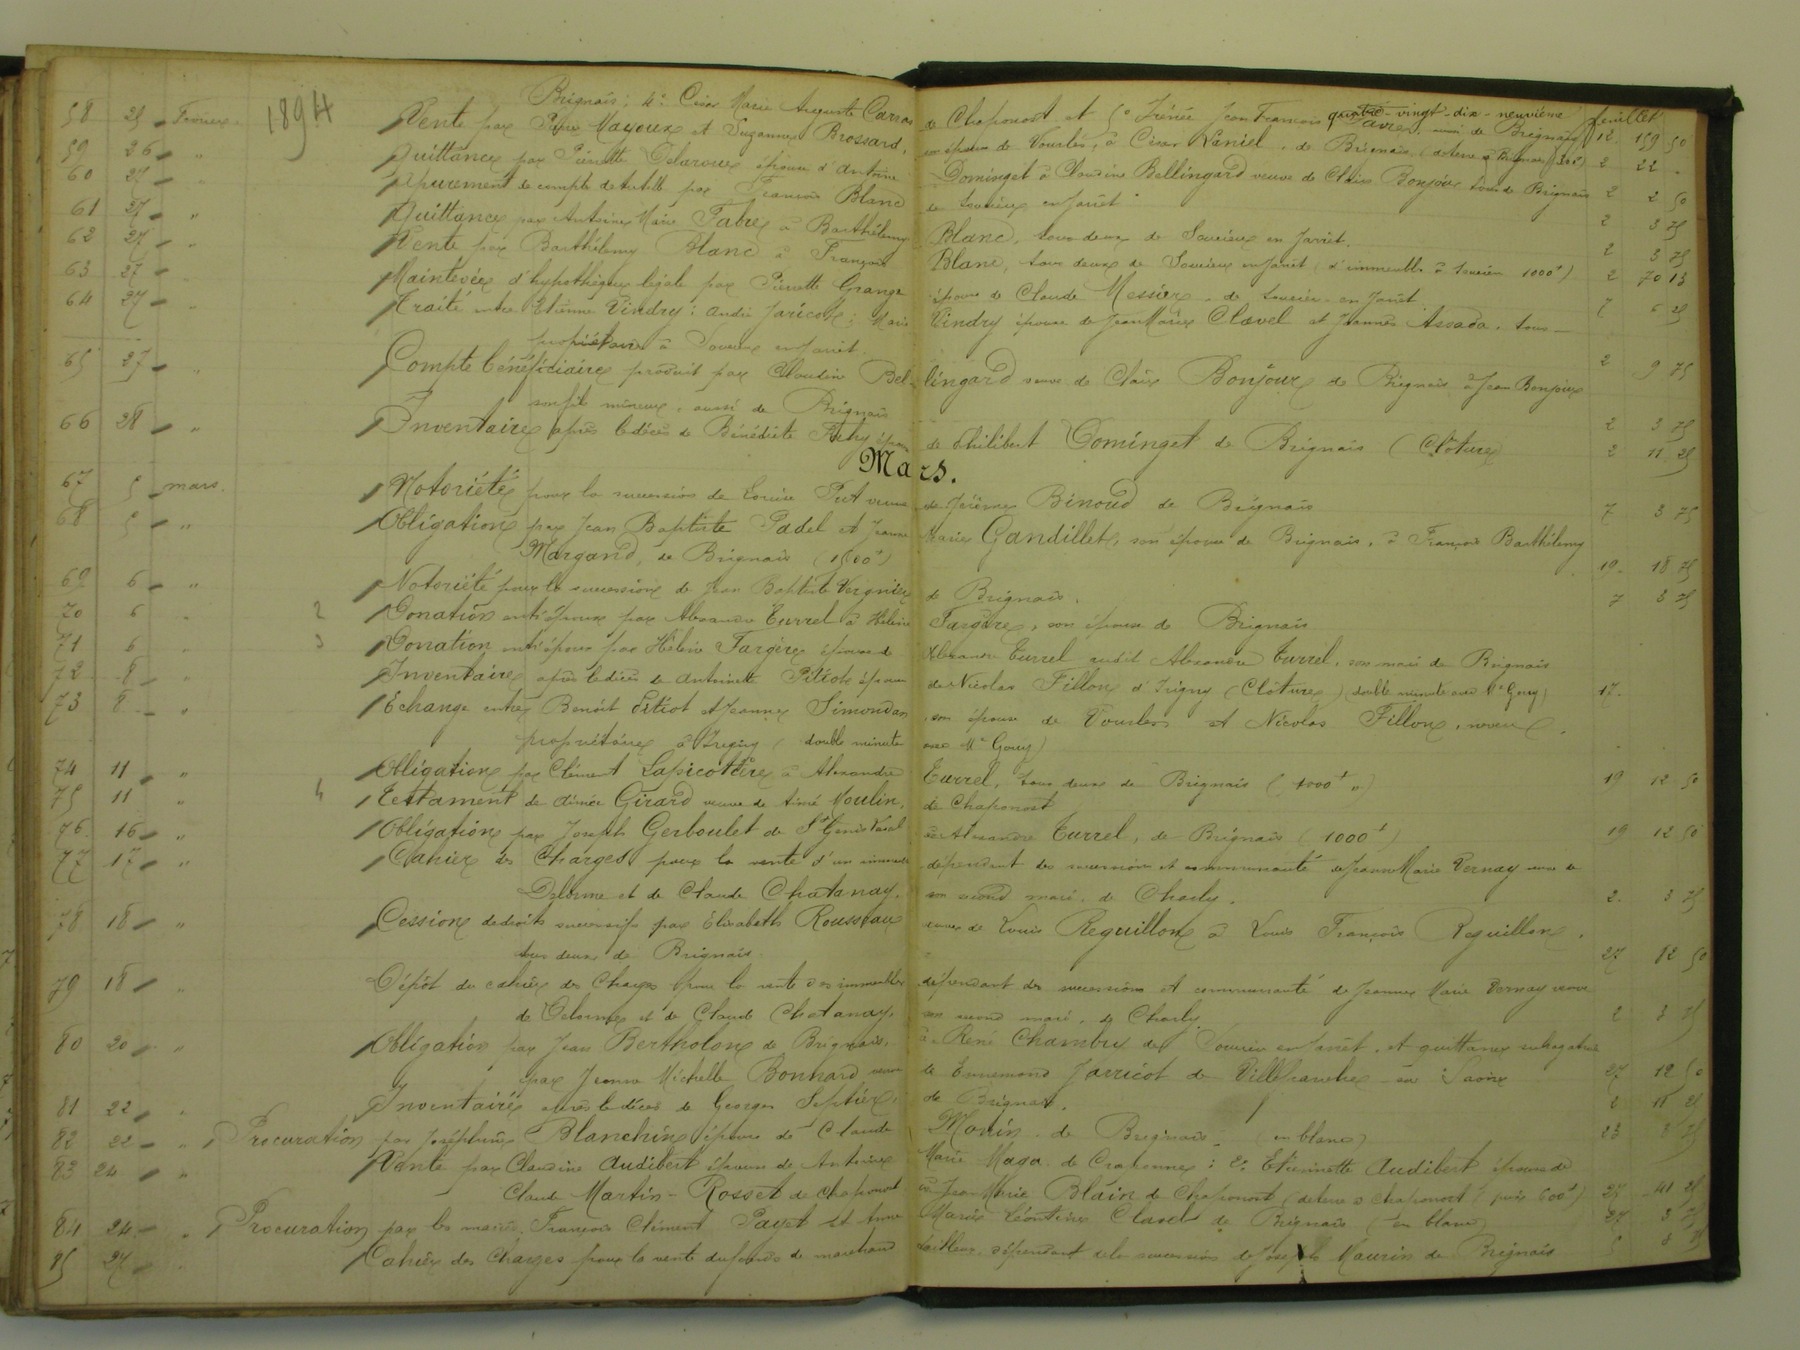 quatre-vingt-dix-neuvième feuillet
1894
Brignais; 4° César Marie Auguste de Chaponost et 5° Irénée Jean François Favre, aussi de Brignais 12 159 50
58 25 Février Vente par Pierre Mayoux et Suzanne Brossard, son épouse de Vourles, à César Naniel, de Brignais
59 26 " Quittance par Pierrette Delaroue épouse d'Antoine Dominget à Claudine Bellingard veuve de Claix Bonjour tous de Brignais
60 27 " Apurement de compte de tutelle par François Blanc de Soucieu en Jarret
61 27 " Quittance par Antoine Marie Fabre à Barthélemy Blanc, tous deux de Soucieu en Jarret.
62 27 " Vente par Barthélemy Blanc à François Blanc, tous deux de Soucieu en Jarret (d'immeuble à Soucieu 1000f)
63 27 " Mainlevée d'hypothèque légale par Pierrette Grange épouse de Claude Messier de Soucieu-en-Jarret
64 27 " Traité entre Etienne Vindry; André Jaricot; Marie Vindry épouse de Jean Marie Clavel et Jeannès Assada. tous
propriétaires à Soucieu en Jarret.
65 27 " Compte bénéficiaire produit par Claudine Bellingard veuve de Claix Bonjour de Brignais à Jean Bonjour
son fils mineur, aussi de Brignais
66 28 " Inventaire après le décès de Bénédicte épouse de Philibert Dominget de Brignais (Clôture)
Mars.
67 5 mars. Notoriété pour la succession de Louise Put veuve de Jérôme Binoud de Brignais 7 3 75
68 5 " Obligation par Jean Baptiste Padel et Jeanne Marie Gandillet, son épouse de Brignais, à François Barthélemy
Margand, de Brignais 19 18 75
69 6 " Notoriété pour la succession de Jean Baptiste Vergnier de Brignais. 7 3 75
70 6 " 2 Donation entre époux par Alexandre Turrel à Hélène Fargère, son épouse de Brignais
71 6 " 3 Donation entre époux par Hélène Fargère épouse de Alexandre Turrel audit Alexandre Turrel, son mari de Brignais
72 8 " Inventaire après le décès de Antoinette Pitiot épouse de Nicolas Fillon d'Irigny (Clôture) (double minute avec Me Gouy) 17
73 8 " Echange entre Benoît Pitiot et Jeanne Simondan, son épouse de Vourles et Nicolas Fillon, neveu
propriétaire à Irigny (double minute avec Me Gouy)
74 11 " Obligation par Clément Lapicotière à Alexandre Turrel, tous deux de Brignais (1000f ") 19 12 50
75 11 " 4 Testament de Aimée Girard veuve de Aimé Moulin, de Chaponost
76 16 " Obligation par Joseph Gerboulet de St Genis Laval à Alexandre Turrel, de Brignais (1000f) 19 12 50
77 17 " Cahier des Charges pour la vente d'un immeuble dépendant des succession et communauté de Jeanne Marie Vernay veuve de
Delorme et de Claude Chatanay, son second mari, de Charly. 2 3 75
78 18 " Cession de droits successifs par Elisabeth Rousseau veuve de Louis Reguillon à Louis François Reguillon,
tous deux de Brignais. 27 82 50
79 18 " Dépôt du cahier des Charges pour la vente des immeubles dépendant des successions et communauté de Jeanne Marie Vernay veuve
de Delorme et de Claude Chatanay, son second mari, de Charly. 2 3 75
80 20 " Obligation par Jean Bertholon de Brignais, à René Chambry de Soucieu en Jarret, et quittance subrogative
par Jeanne Michelle Bonnard veuve de Ennemond Jarricot de Villefranche-sur-Saône 27 12 50
81 22 " Inventaire après le décès de Georges Septier, de Brignais. 2 11 25
82 22 " Procuration par Joséphine Blanchin épouse de Claude Monin de Brignais. (en blanc) 23 3 75
83 24 " Vente par Claudine Audibert épouse de Antoine Marie Maga de Craponne; 2° Etiennette Audibert épouse de
Claude Martin-Rosset de Chaponost à Jean Marie Blain de Chaponost (de terre à Chaponost prix 600f) 27 41 25
84 24 " Procuration par les mariés François Clément Payet et Anne Marie Léontine Clavel de Brignais (en blanc) 27 3 75
85 27 " Cahier des Charges pour la vente du fonds de marchand tailleur, dépendant de la succession de Joseph Maurin de Brignais